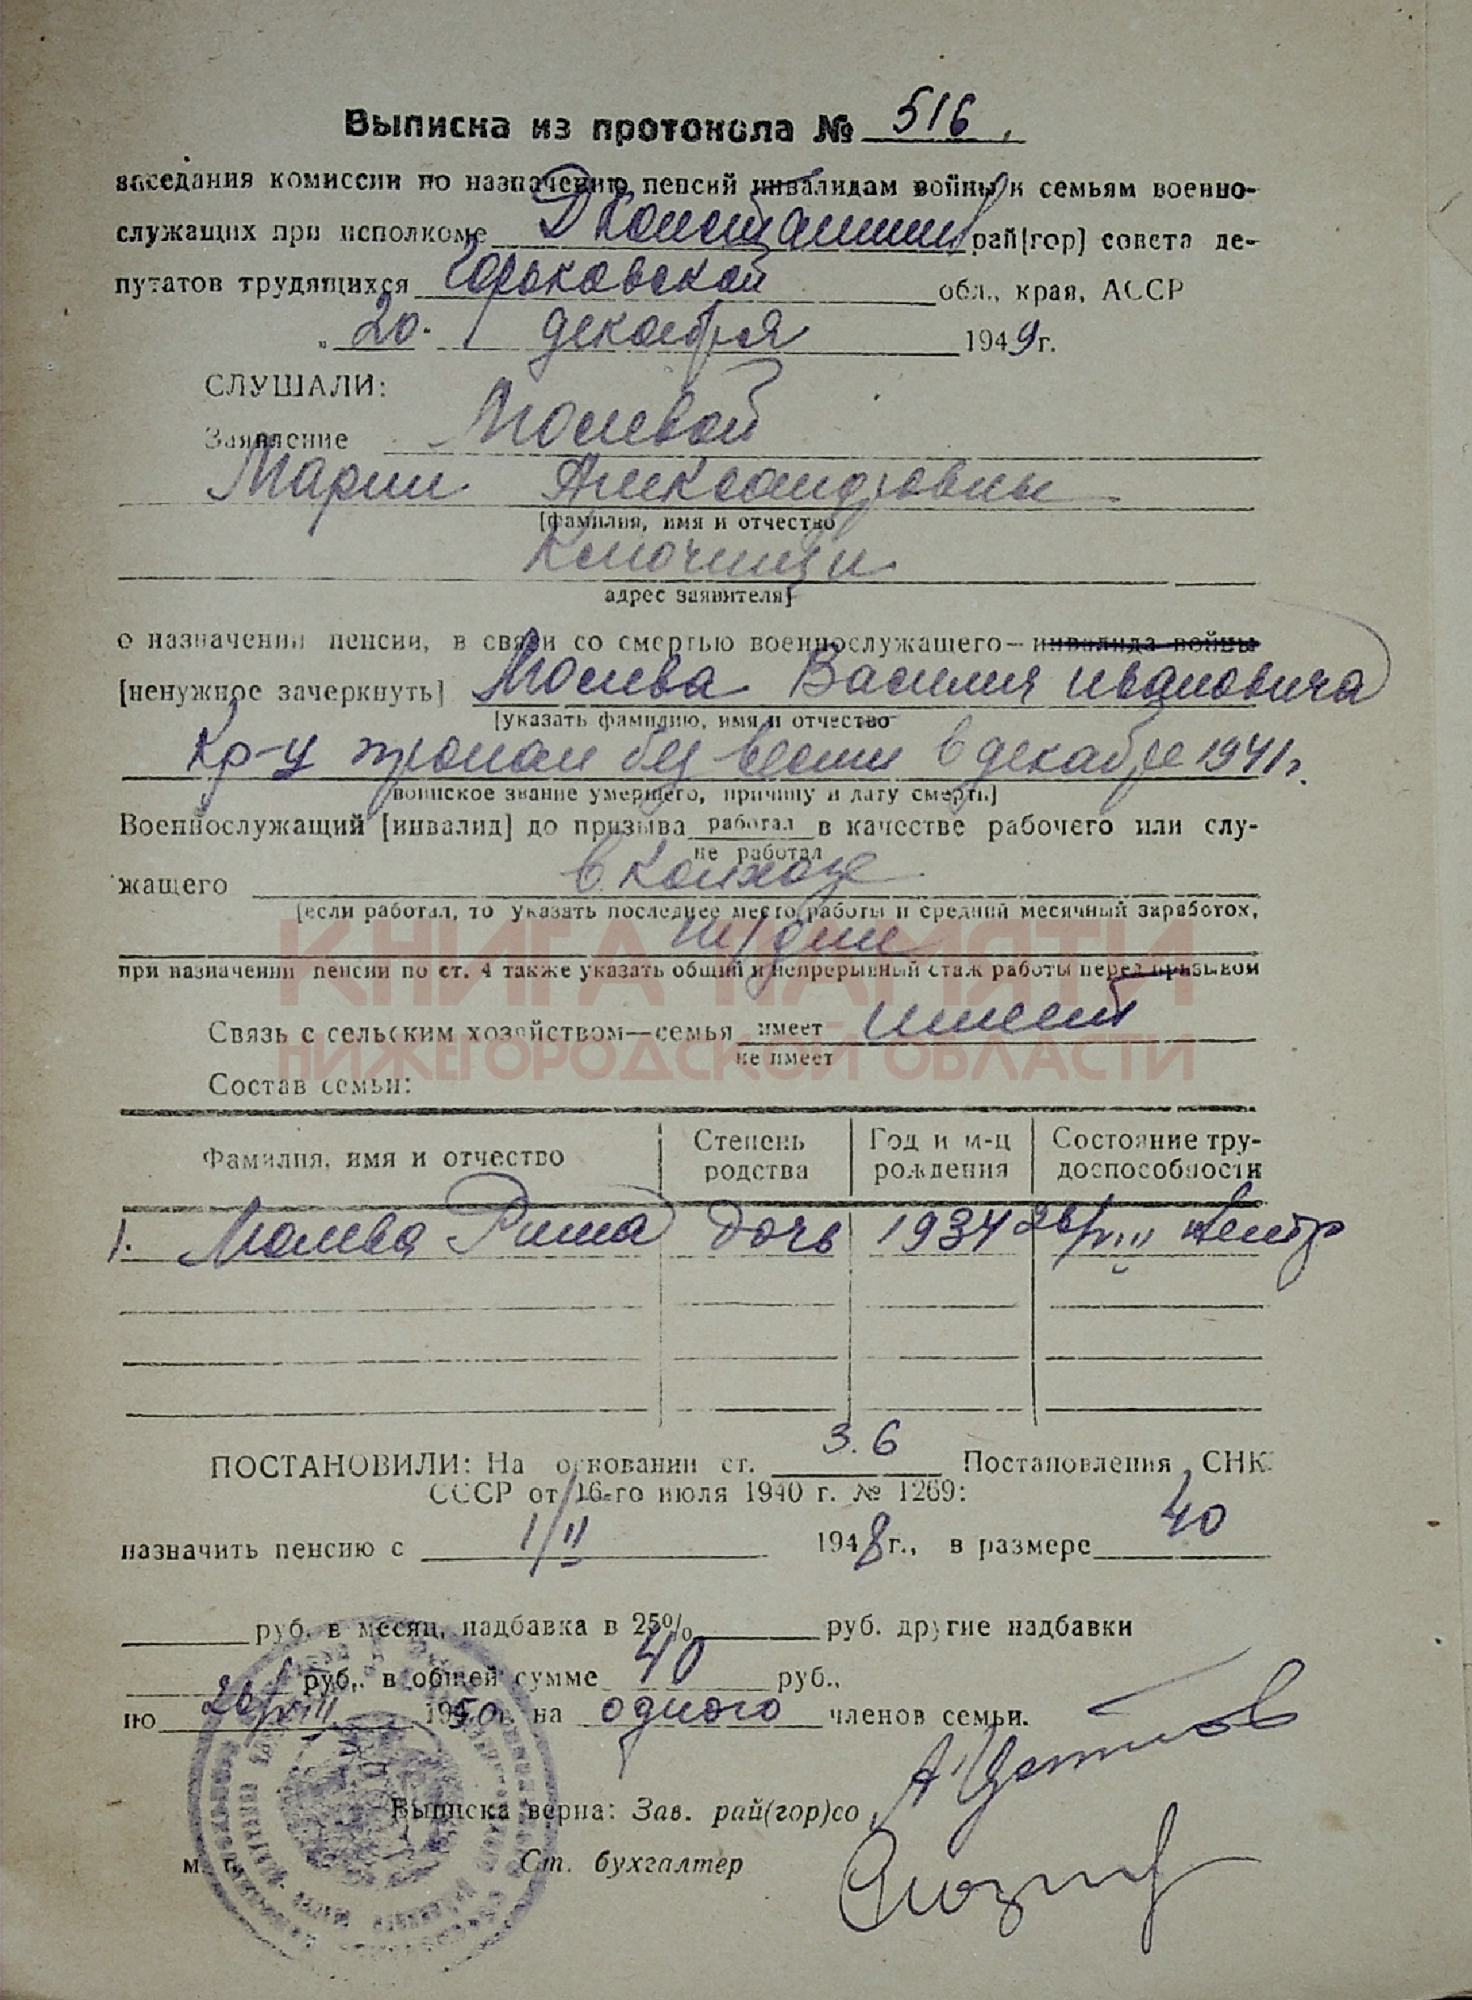 Выписка из протокола № 516.
заседания комиссии по назначению пенсий инвалидам войны и семьям военно-
служащих при исполкоме Дконстантин рай[гор] совета де-
путатов трудящихся Горьковской обл., края, АССР
„ 20. декабря 1949 г.
СЛУШАЛИ:
Заявление Молевой
Марии Александровны
[фамилия, имя и отчество
Ключищи
адрес заявителя]
о назначении пенсии, в связи со смертью военнослужащего—инвалида войны
[ненужное зачеркнуть] Молева Василия Ивановича
[указать фамилию, имя и отчество
кр-ц пропал без вести в декабре 1941 г.
воинское звание умершего, причину и дату смерти]
Военнослужащий [инвалид] до призыва работал в качестве рабочего или слу-
не работал
жащего в колхозе
[если работал, то указать последнее место работы и средний месячный заработок,
тр/дни
при назначении пенсии по ст. 4 также указать общий и непрерывный стаж работы перед призывом
КНИГА ПАМЯТИ
Связь с сельским хозяйством—семья имеет имеет
не имеет
НИЖЕГОРОДСКОЙ ОБЛАСТИ
Состав семьи:
Фамилия, имя и отчество Степень родства Год и м-ц рождения Состояние тру-доспособности
1. Молева Римма дочь 1934 26/VIII
ПОСТАНОВИЛИ: На основании ст. 3. 6 Постановления СНК
СССР от 16-го июля 1940 г. № 1269:
назначить пенсию с 1/II 1948 г., в размере 40
руб. в месяц, надбавка в 25% руб. другие надбавки
руб., в общей сумме 40 руб.,
по 26/VIII 1950 г. на одного членов семьи.
Выписка верна: Зав. рай(гор)со
м. п. Ст. бухгалтер